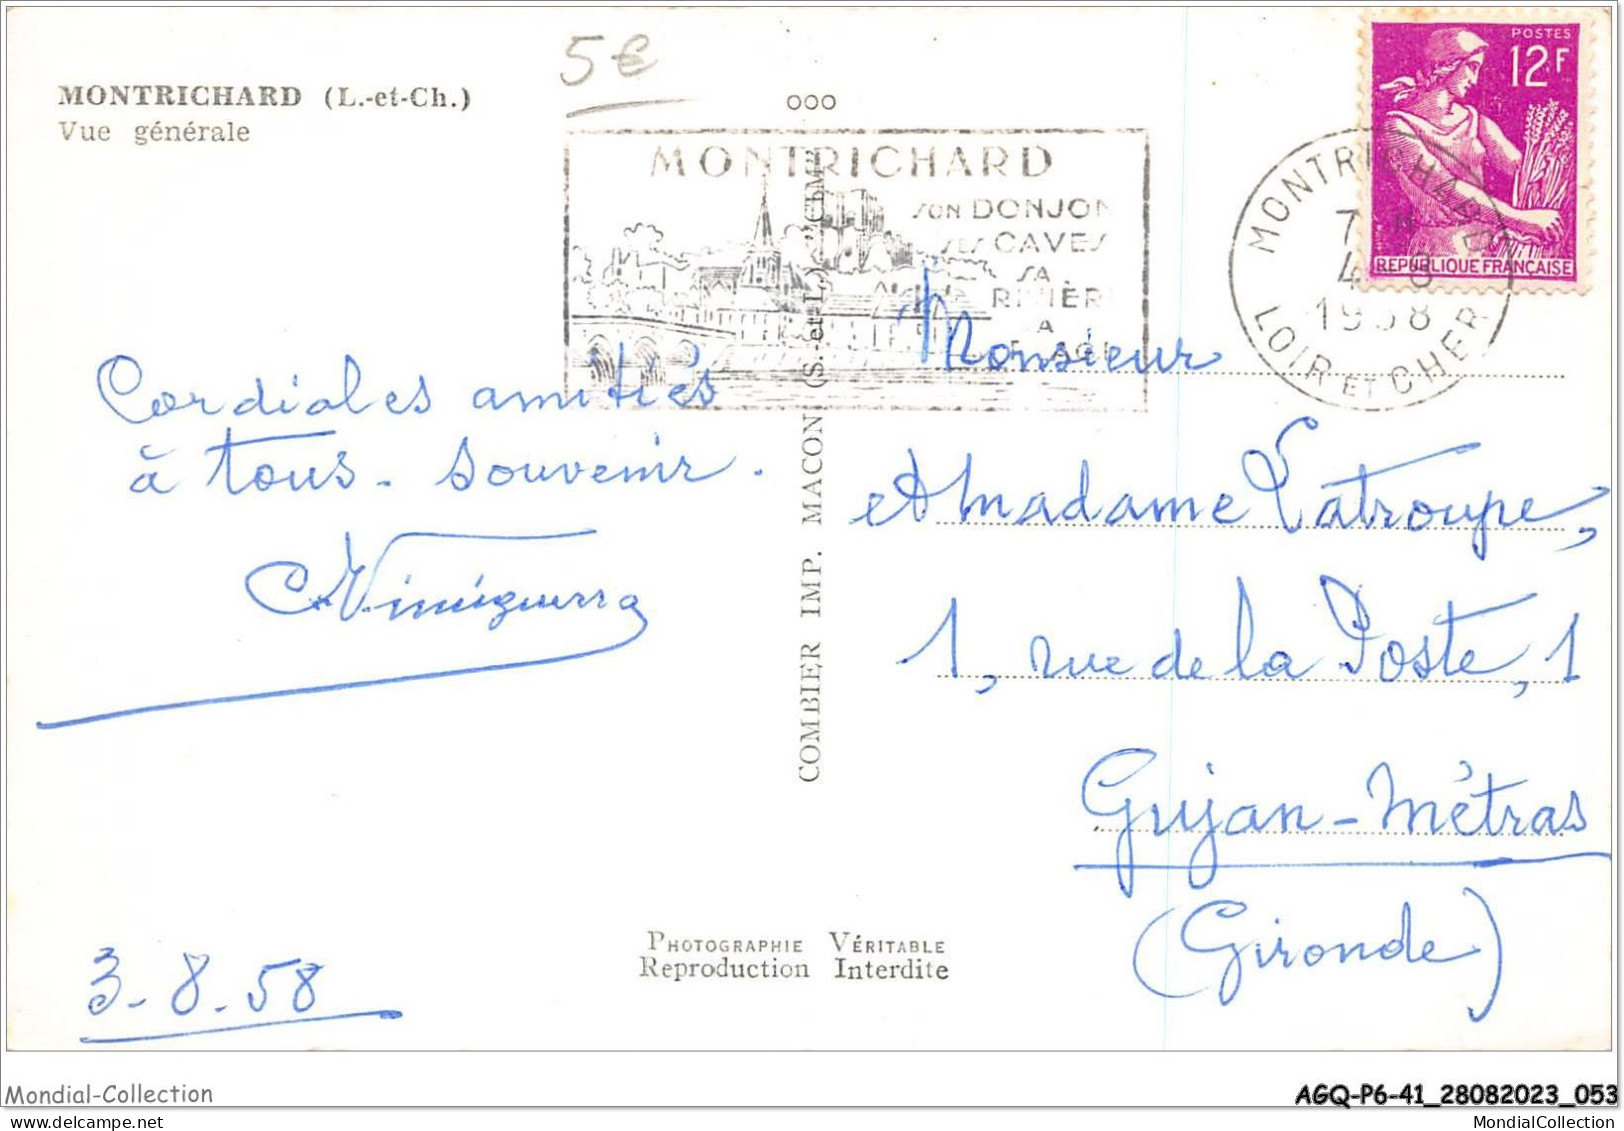 MONTRICHARD (L.-et-Ch.)
Vue générale
5€
ooo
MONTRICHARD
SON DONJON
SES CAVES
SA
RIVIÈR
A
POSTES
12F
REPUBLIQUE FRANÇAISE
MONTRICHARD
1958
LOIR ET CHER
Cordiales amitiés
à tous - souvenir.
COMBIER IMP. MACON (S.-et-L.) "CIM"
Monsieur
et madame Latroupe,
1, rue de la Poste, 1
Gujan-Métras
(Gironde)
3-8-58
PHOTOGRAPHIE VÉRITABLE
Reproduction Interdite
Mondial-Collection
AGQ-P6-41_28082023_053
www.delcampe.net
MondialCollection